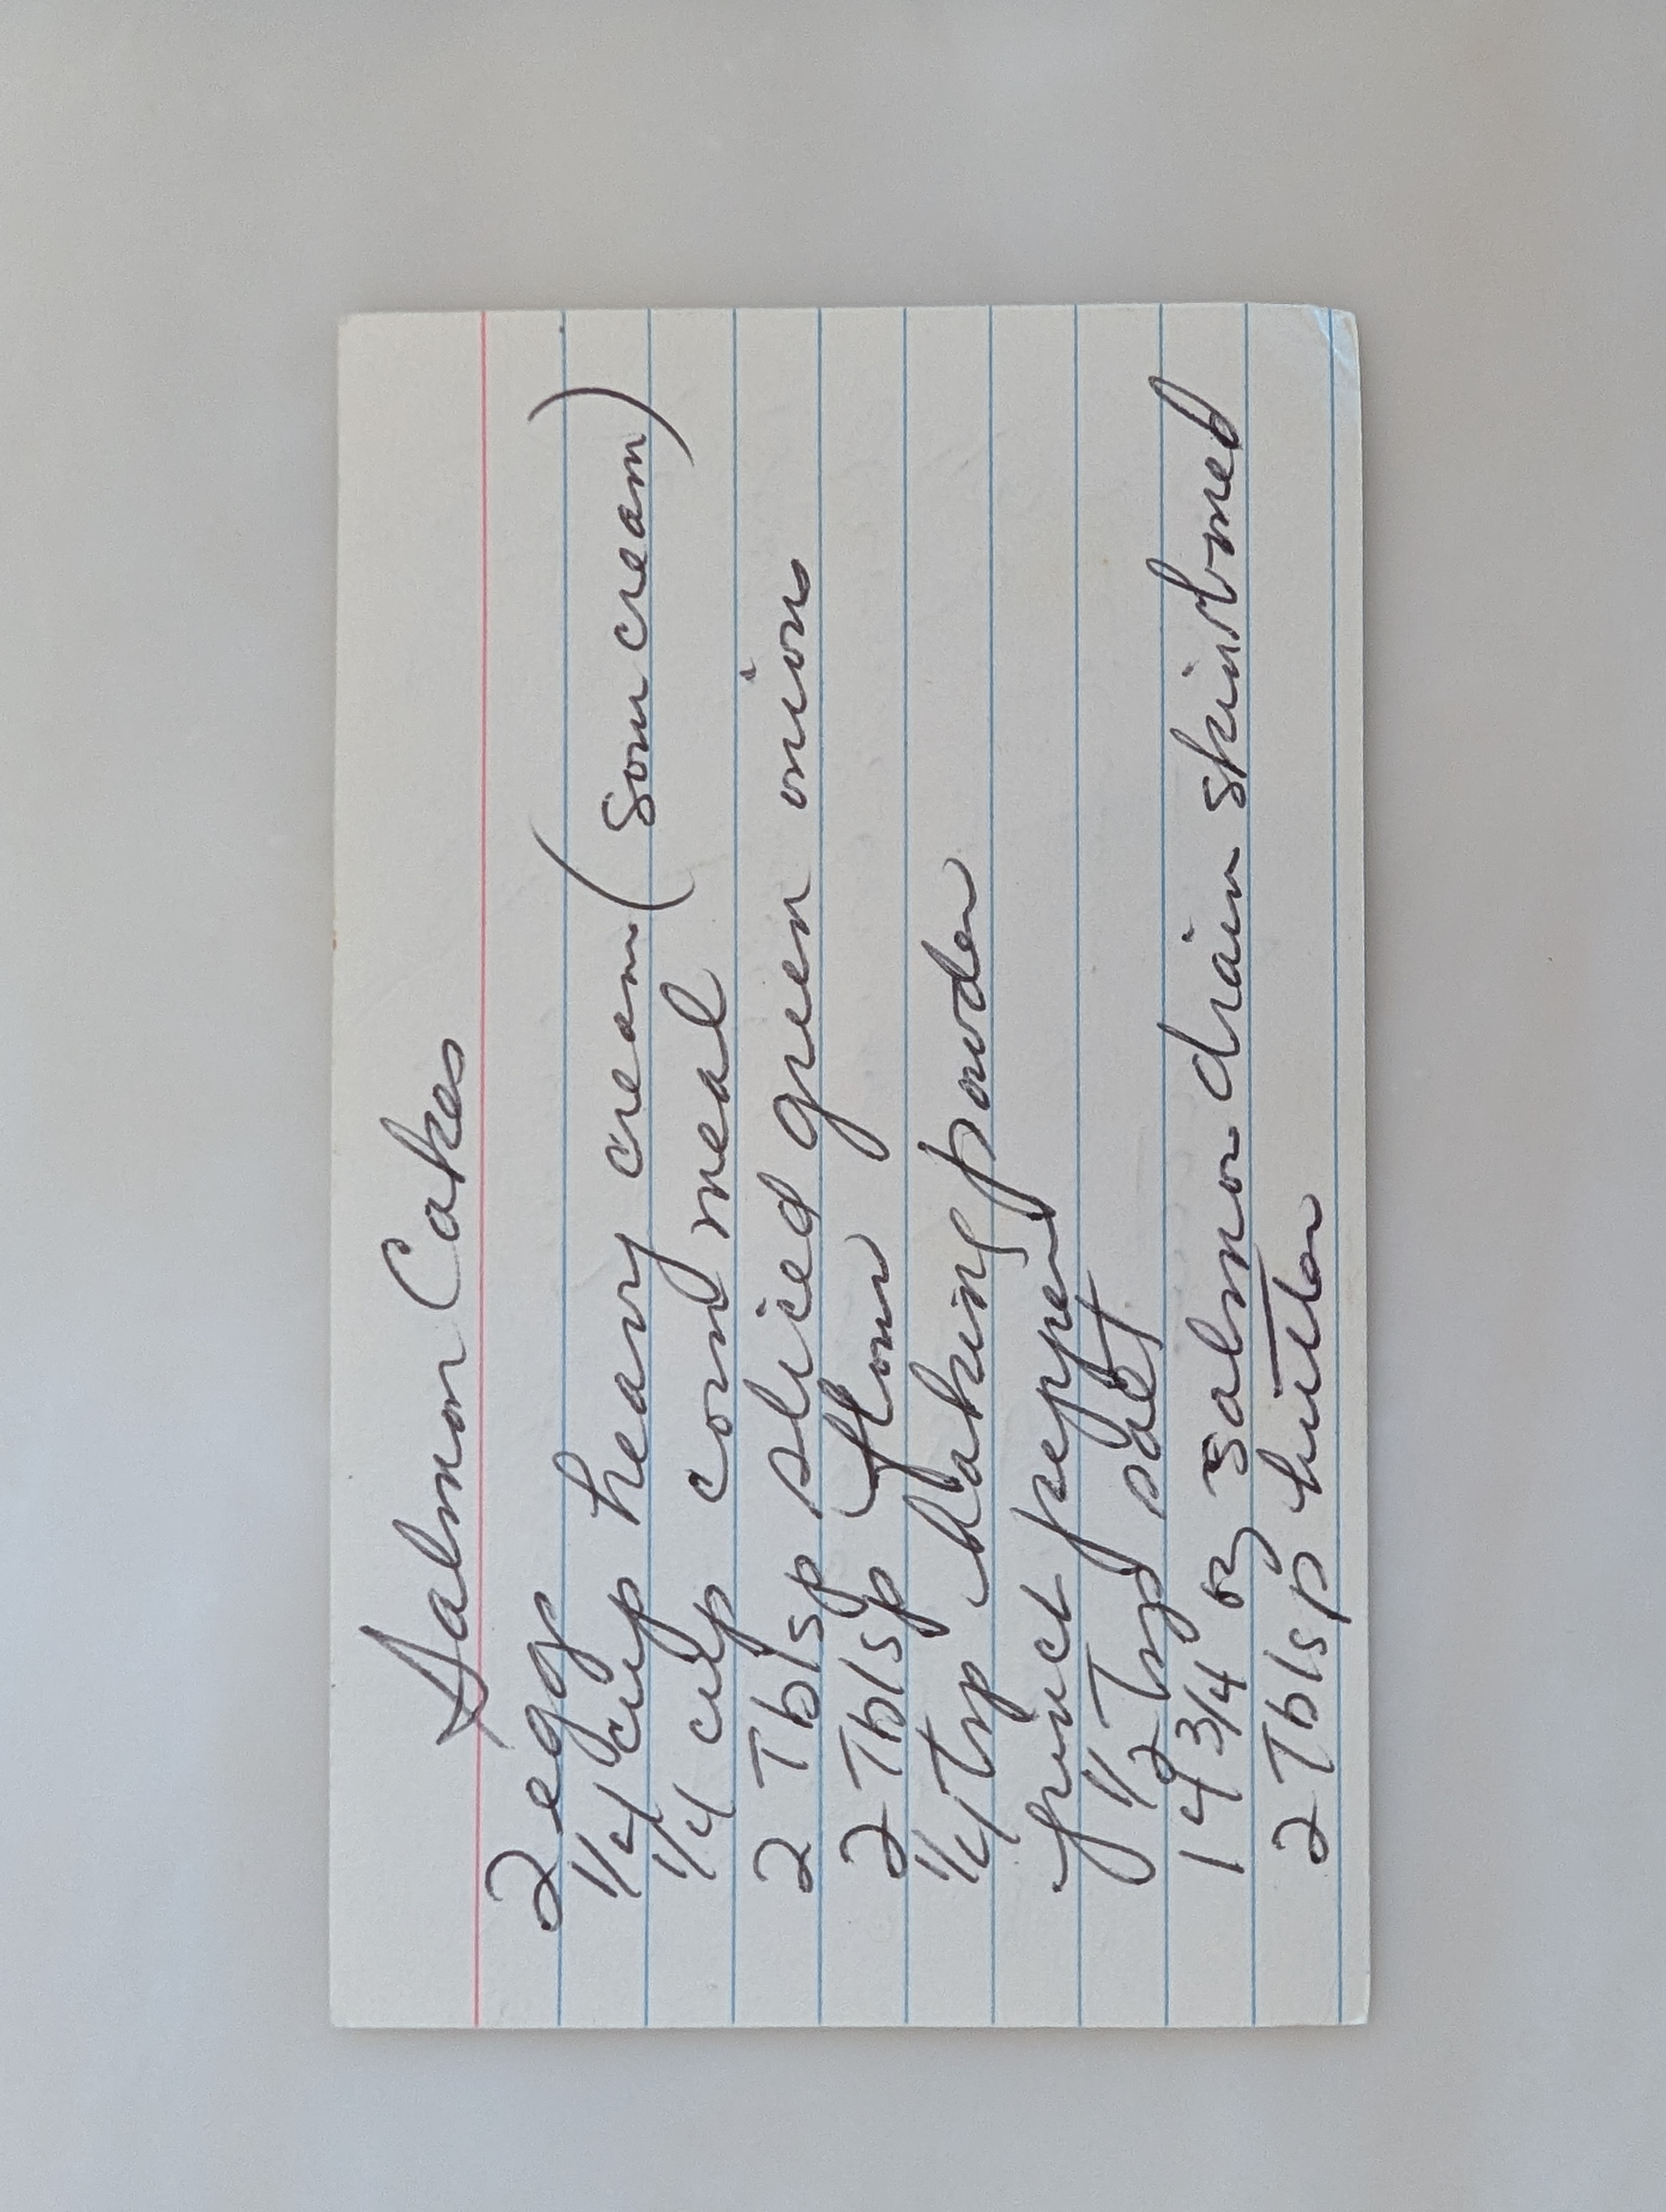 Salmon Cakes
2 eggs
1/4 cup heavy cream (sour cream)
1/4 cup corn meal
2 Tblsp sliced green onion
2 Tblsp flour
1/4 Tsp baking powder
pinch pepper
1/2 Tsp salt
14 3/4 oz salmon drain skin boned
2 Tblsp butter